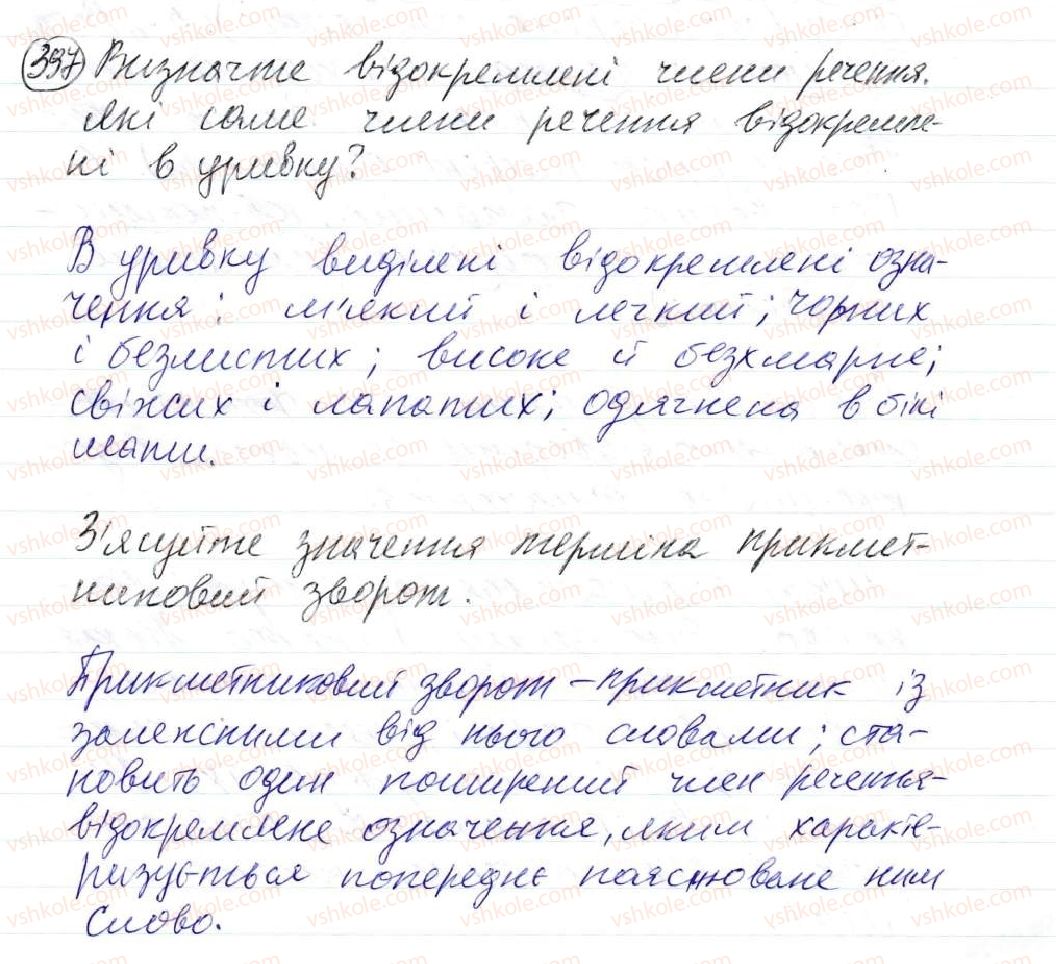 397 Визначте відокремлені члени речення.
Які саме члени речення відокремле-
ні в уривку?
В уривку виділені відокремлені озна-
чення: м'який і легкий; чорних
і безлистих; високе й безхмарне;
свіжих і лапатих; одягнена в білі
шати.
З'ясуйте значення терміна прикмет-
никовий зворот.
Прикметниковий зворот – прикметник із
залежними від нього словами; ста-
новить один поширений член речення-
відокремлене означення, яким характе-
ризується попереднє пояснюване ним
слово.